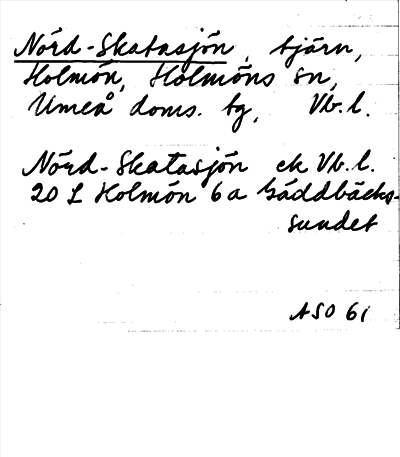 Nörd-Skatasjön, tjärn,
Holmön, Holmöns sn,
Umeå doms. tg, Vb.l.
Nörd-Skatasjön ek Vb.l.
20 L Holmön 6 a Gäddbäcks-
sundet
ASO 61